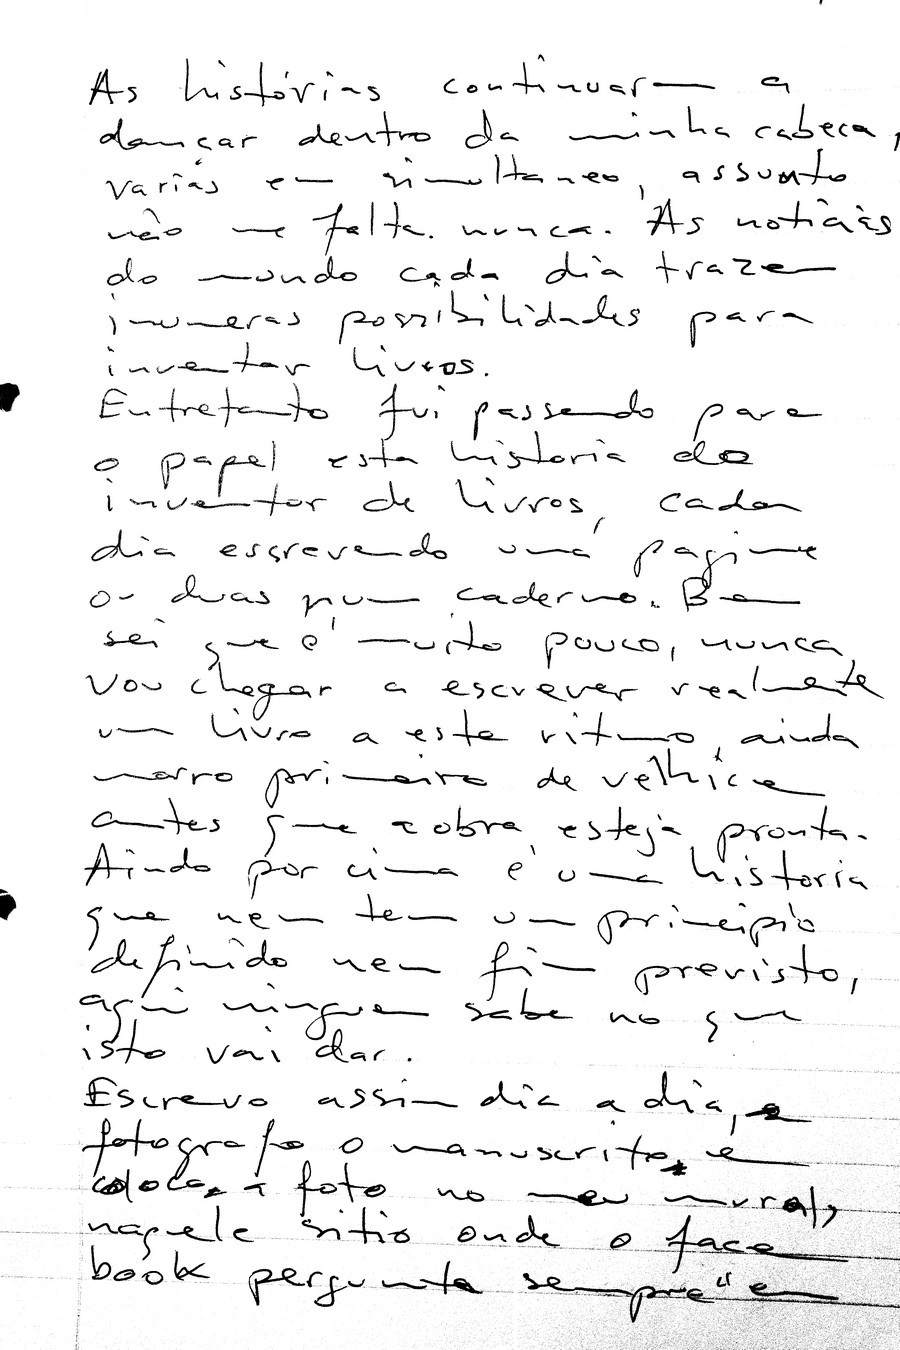 As histórias continuam a
dançar dentro da minha cabeça,
várias em simultaneo, assunto
não me falta nunca. As noticias
do mundo cada dia trazem
inumeras possibilidades para
inventar livros.
Entretanto fui passando para
o papel esta historia do
inventor de livros, cada
dia escrevendo uma pagina
ou duas num caderno. Bem
sei que é muito pouco, nunca
vou chegar a escrever realmente
um livro a este ritmo, ainda
morro primeiro de velhice
antes que a obra esteja pronta.
Ainda por cima é uma historia
que nem tem um principio
definido nem fim previsto,
aqui ninguem sabe no que
isto vai dar.
Escrevo assim dia a dia,
fotografo o manuscrito, e
coloco a foto no meu mural,
naquele sitio onde o face
book pergunta sempre "em